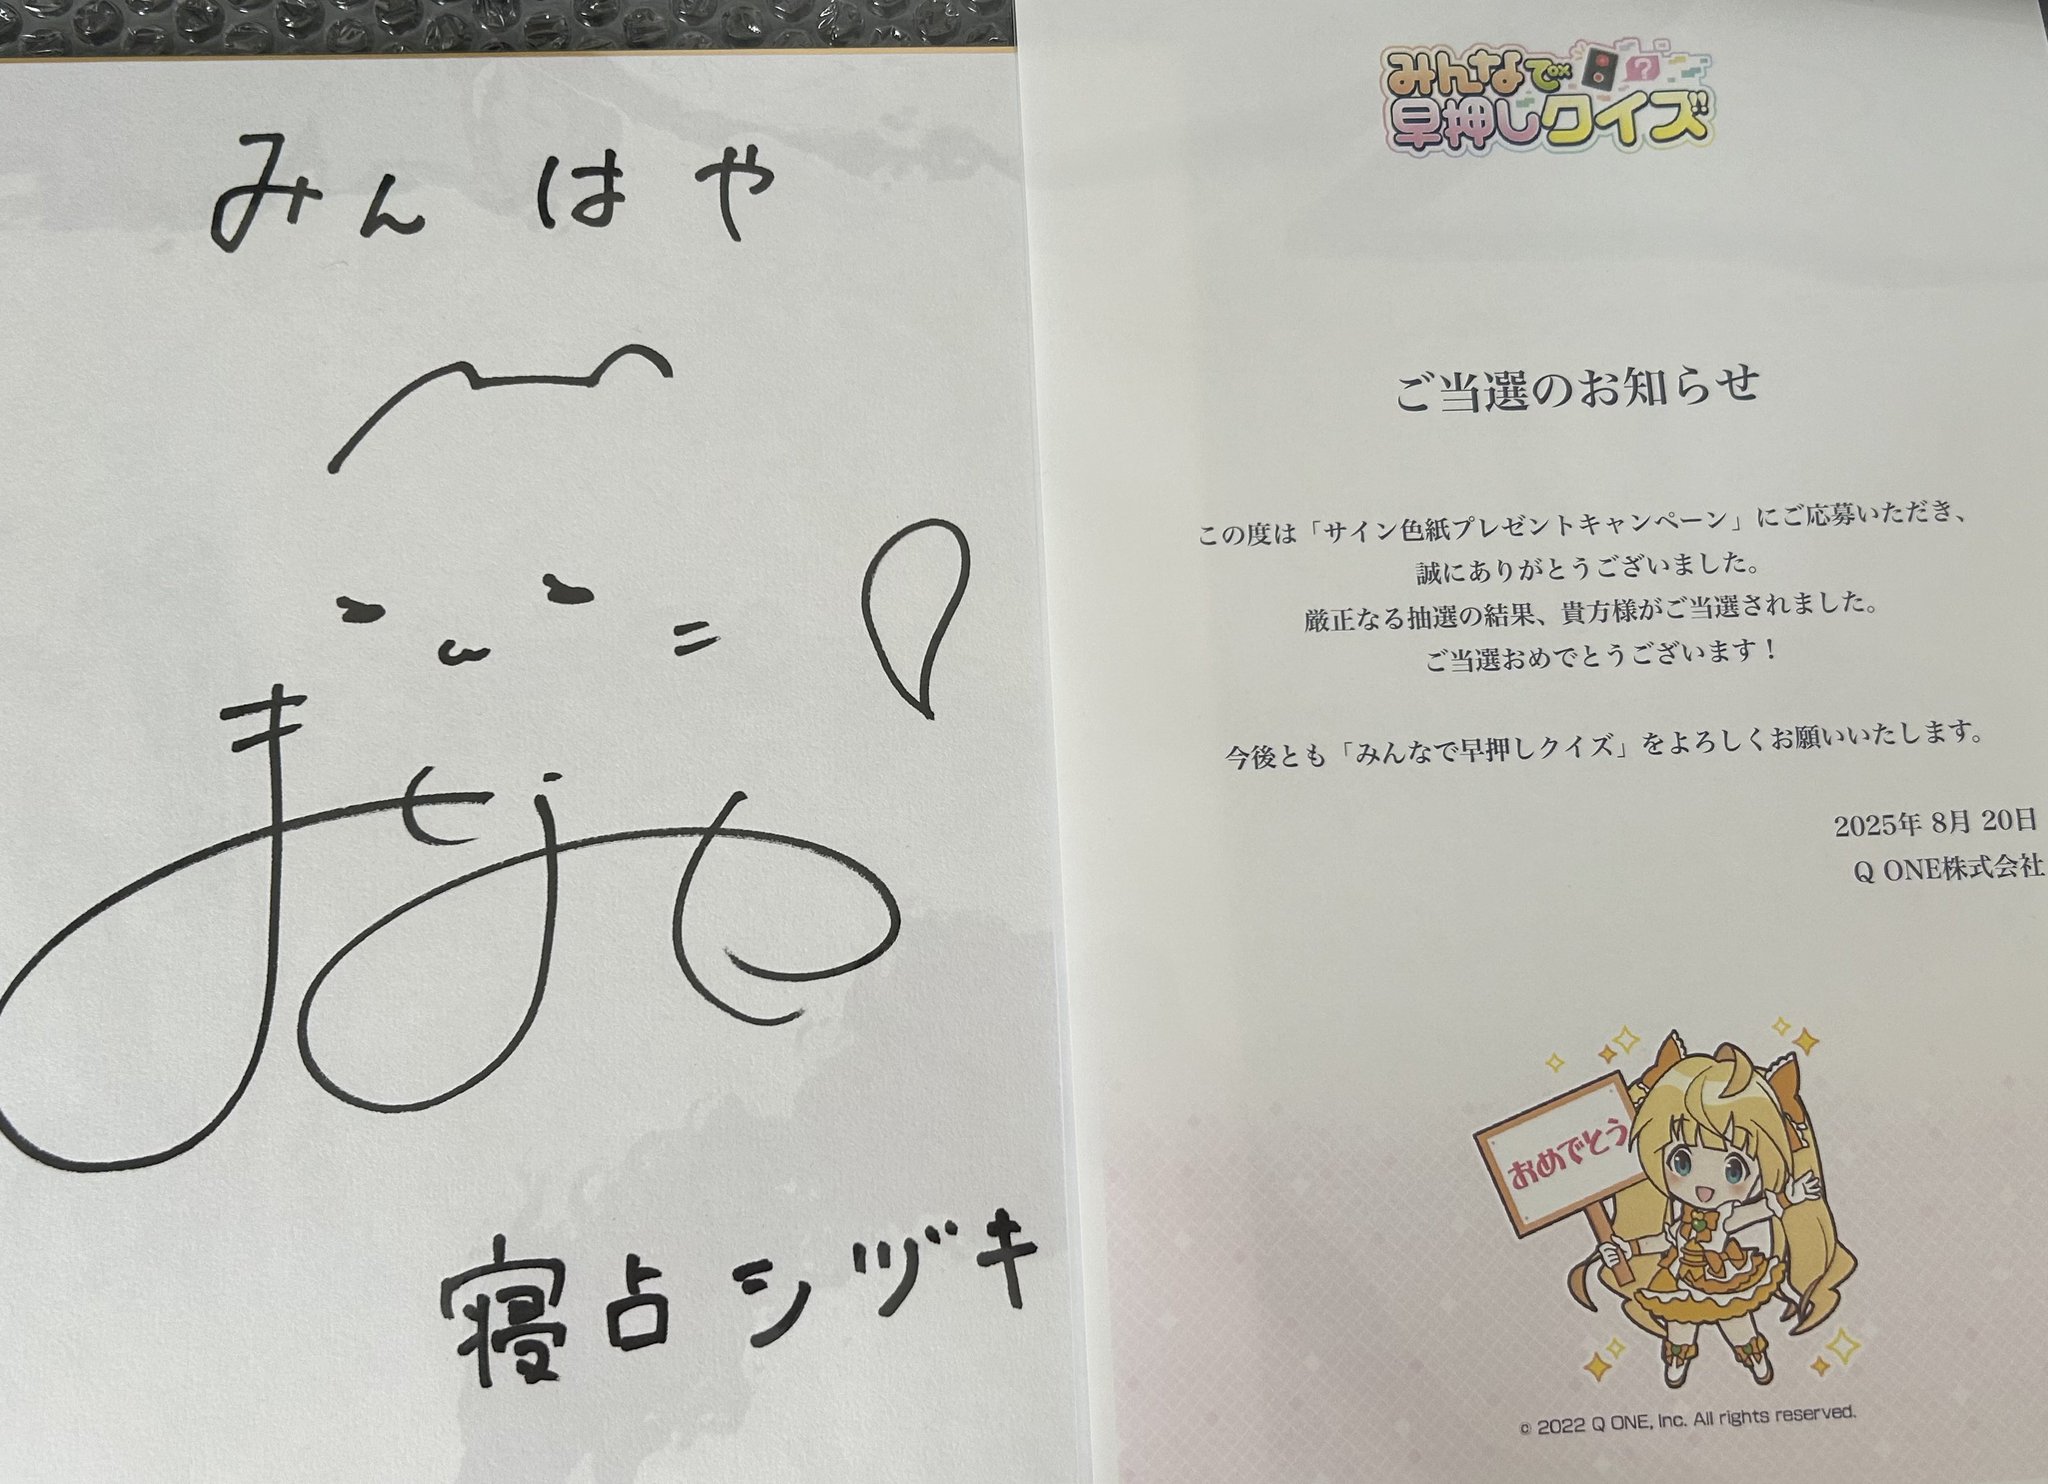 みんはや
寝占シヅキ
みんなで
早押しクイズ
ご当選のお知らせ
この度は「サイン色紙プレゼントキャンペーン」にご応募いただき、
誠にありがとうございました。
厳正なる抽選の結果、貴方様がご当選されました。
ご当選おめでとうございます！
今後とも「みんなで早押しクイズ」をよろしくお願いいたします。
2025年 8月 20日
Q ONE株式会社
おめでとう
© 2022 Q ONE, Inc. All rights reserved.